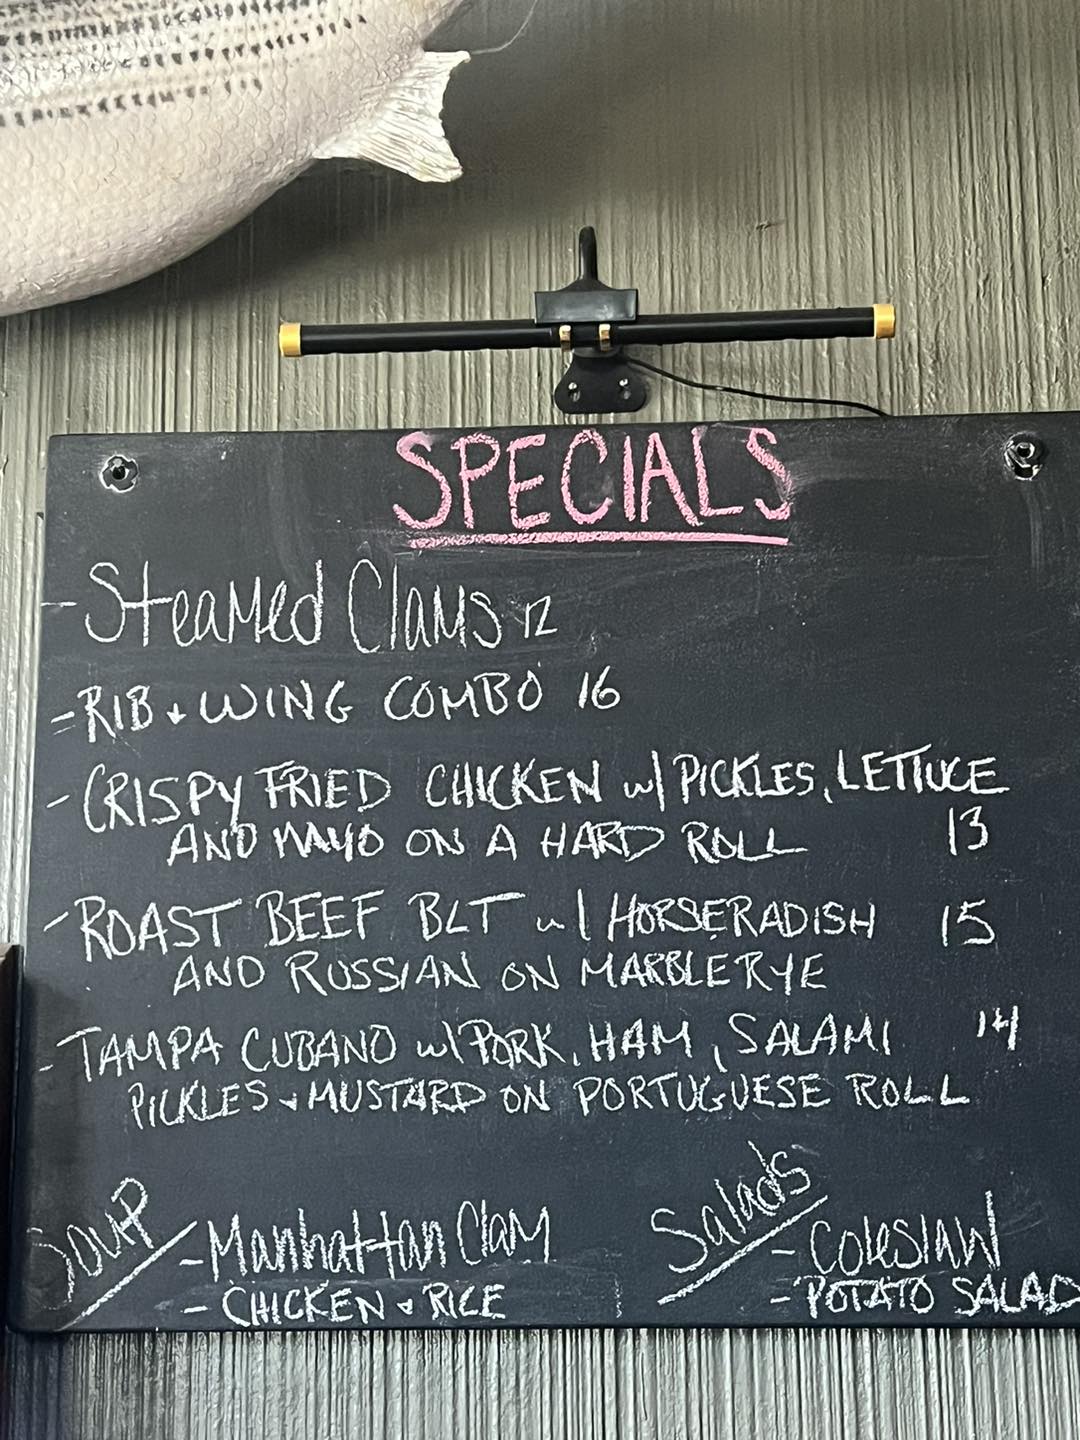 SPECIALS
- Steamed Clams 12
- RIB & WING COMBO 16
- CRISPY FRIED CHICKEN w/ PICKLES, LETTUCE
AND MAYO ON A HARD ROLL 13
- ROAST BEEF BLT w/ HORSERADISH 15
AND RUSSIAN ON MARBLE RYE
- TAMPA CUBANO w/ PORK, HAM, SALAMI 14
PICKLES & MUSTARD ON PORTUGUESE ROLL
SOUP
- Manhattan Clam
- CHICKEN & RICE
Salads
- Coleslaw
- POTATO SALAD